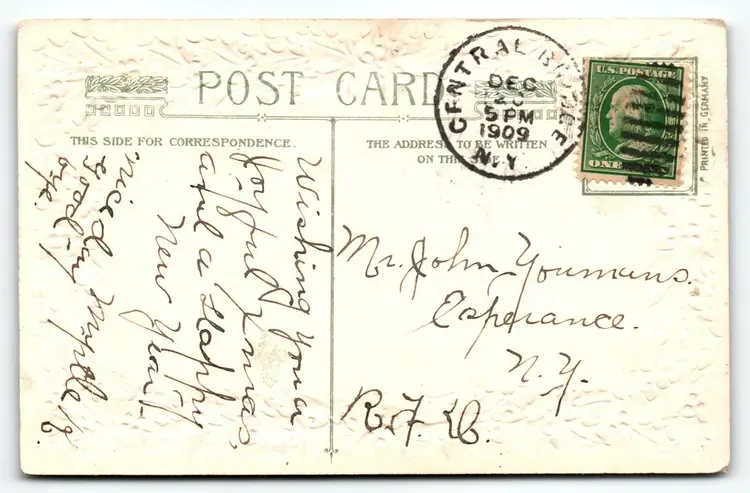 POST CARD
THIS SIDE FOR CORRESPONDENCE.
THE ADDRESS TO BE WRITTEN
ON THIS SIDE.
CENTRAL BRIDGE
DEC
5 PM
1909
N.Y.
U.S. POSTAGE
ONE
PRINTED IN GERMANY
Wishing you a
joyful Xmas,
and a Happy
New Year.
Myrtle
good-by
Mr. John Youmans.
Esperance.
N.Y.
R.F.D.